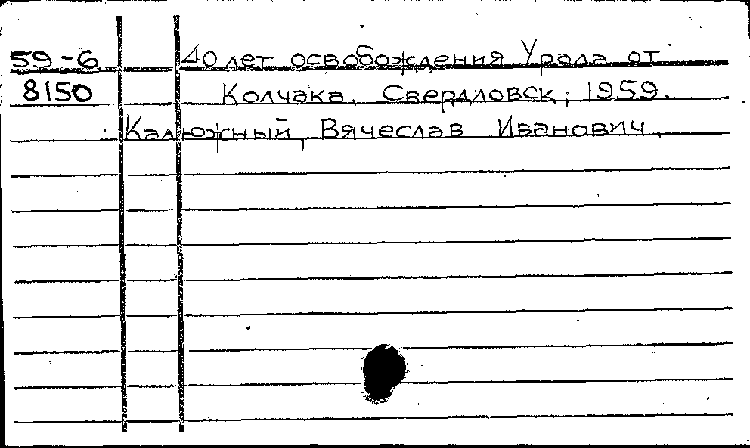 59-6 40 лет освобождения Урала от
8150 Колчака. Свердловск, 1959.
Калюжный, Вячеслав Иванович.